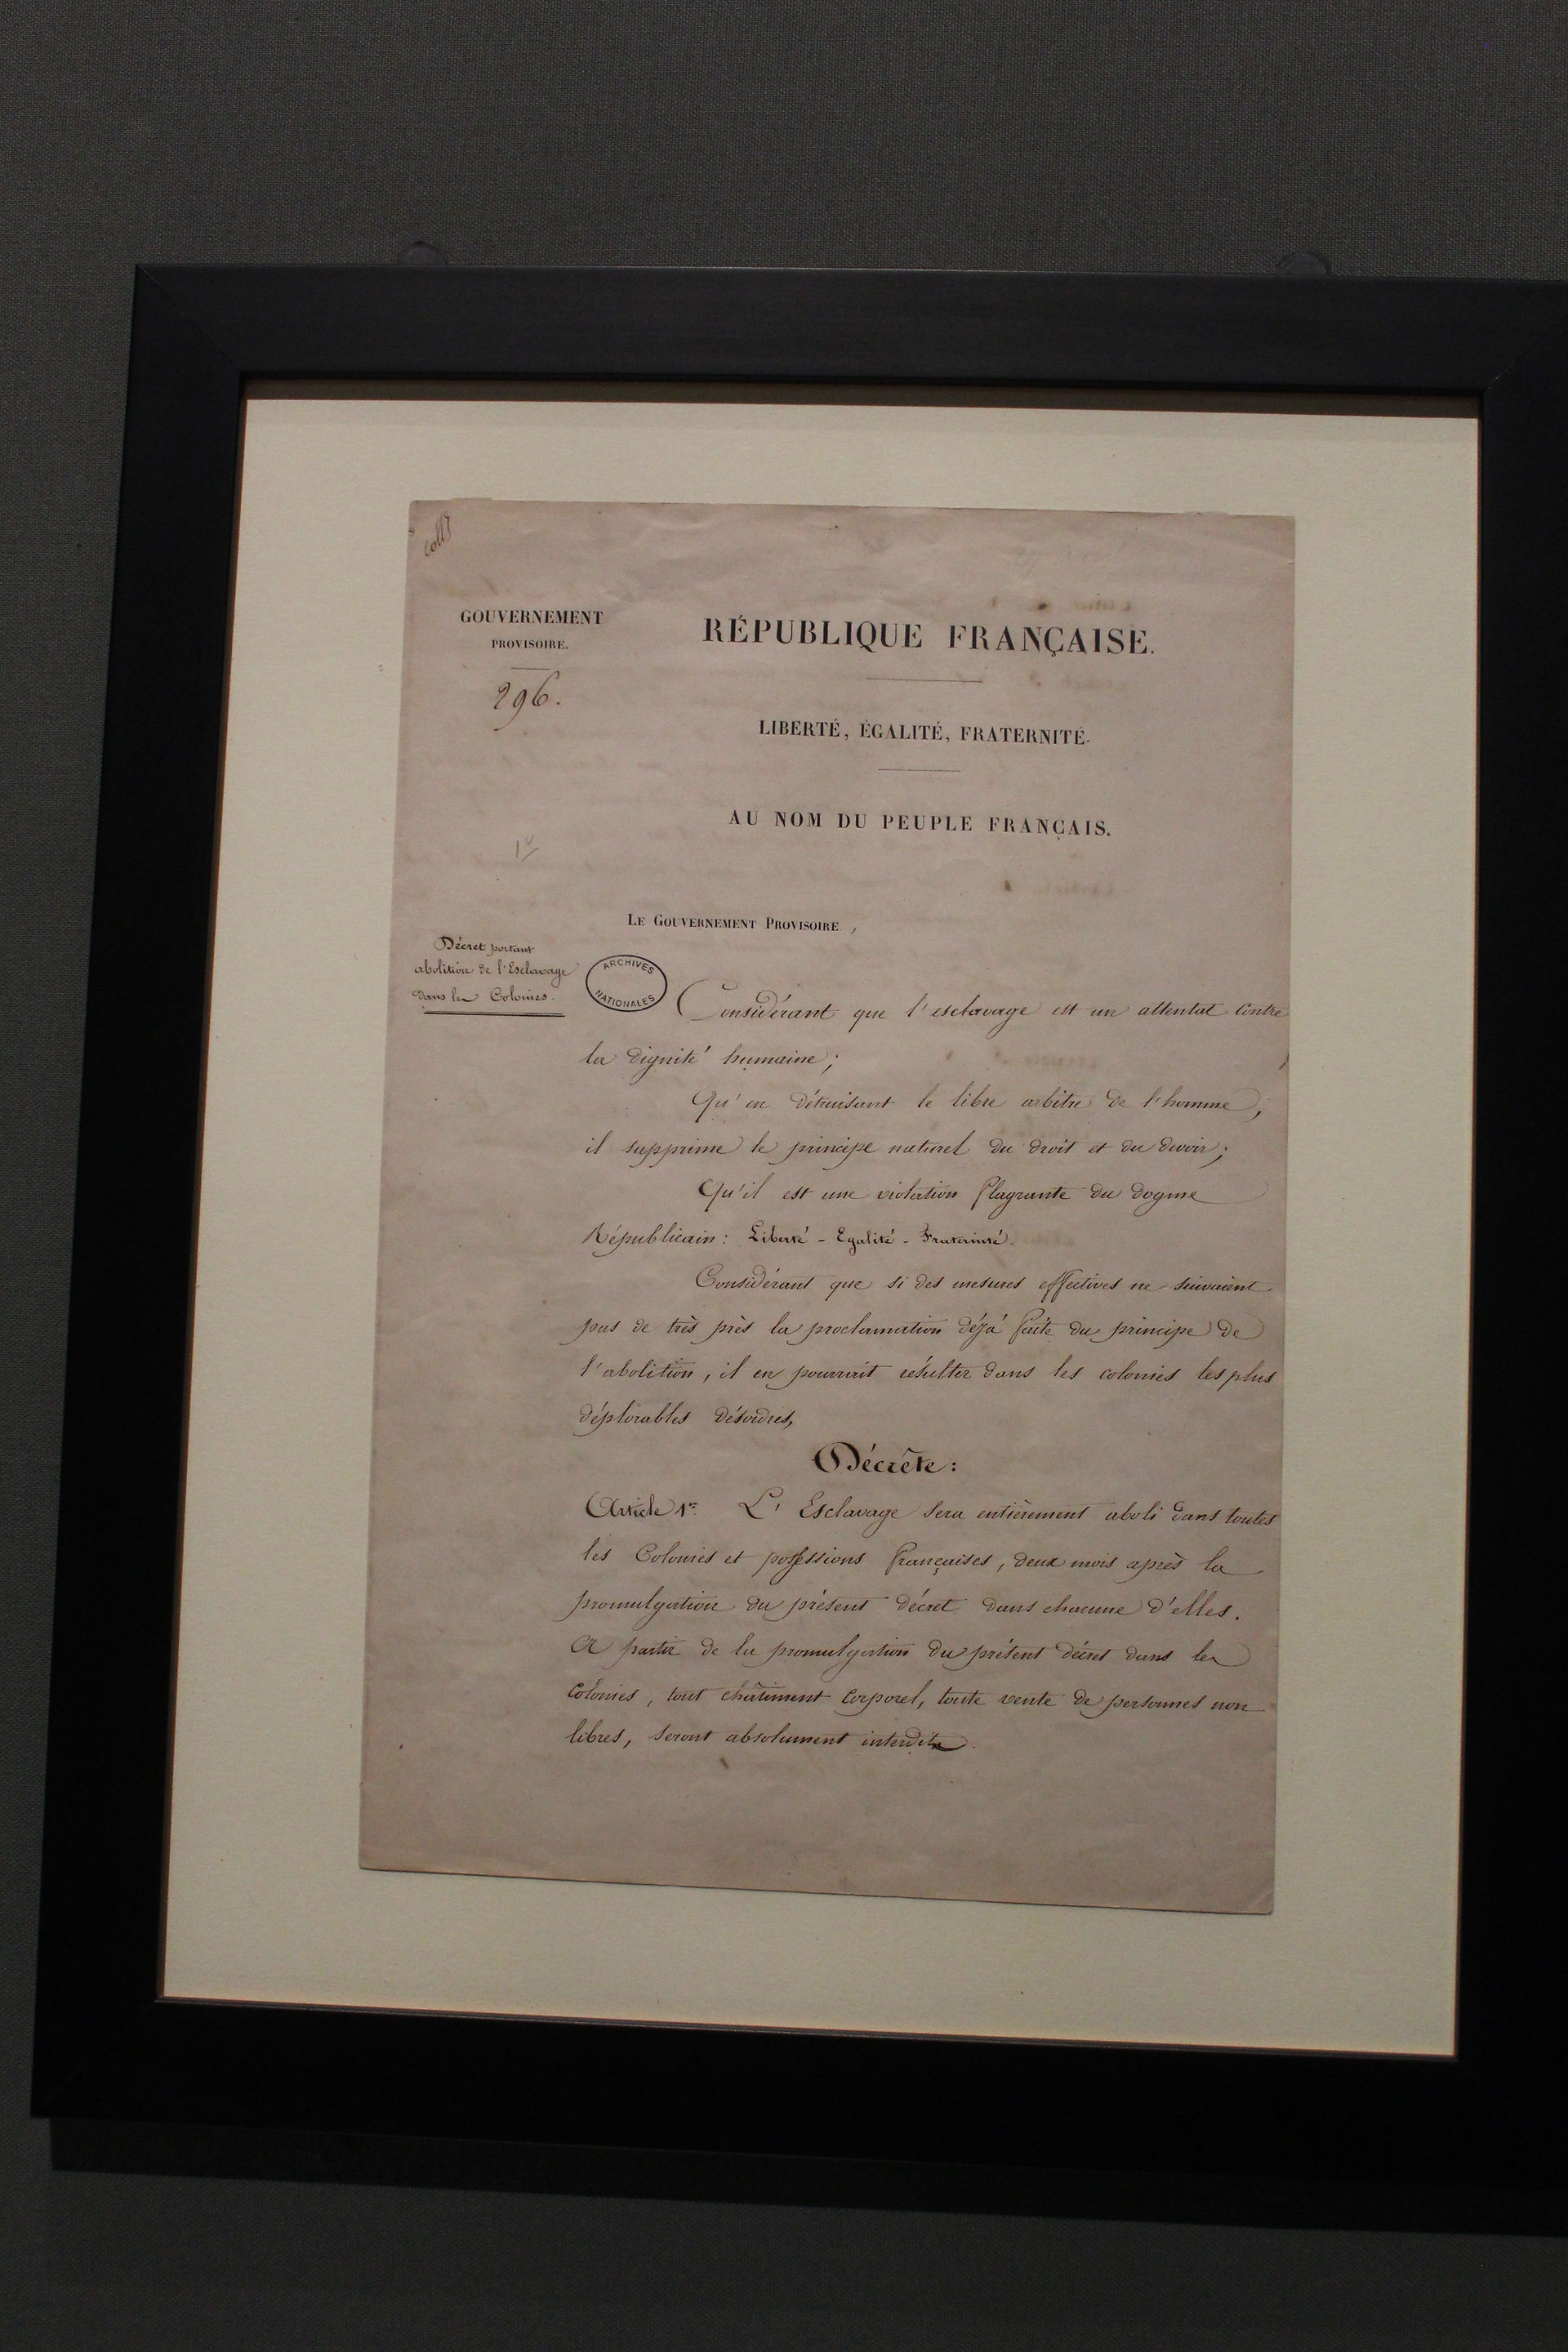 coll?
GOUVERNEMENT
PROVISOIRE.
296.
RÉPUBLIQUE FRANÇAISE.
LIBERTÉ, ÉGALITÉ, FRATERNITÉ.
AU NOM DU PEUPLE FRANÇAIS.
LE GOUVERNEMENT PROVISOIRE,
Décret portant
abolition de l'Esclavage
dans les Colonies.
ARCHIVES
NATIONALES
Considérant que l'esclavage est un attentat contre
la dignité humaine;
Qu'en détruisant le libre arbitre de l'homme,
il supprime le principe naturel du droit et du devoir;
Qu'il est une violation flagrante du dogme
Républicain: Liberté - Egalité - Fraternité.
Considérant que si des mesures effectives ne suivaient
pas de très près la proclamation déjà faite du principe de
l'abolition, il en pourrait résulter dans les colonies les plus
déplorables désordres,
Décrète:
Article 1er. L'Esclavage sera entièrement aboli dans toutes
les Colonies et possessions françaises, deux mois après la
promulgation du présent décret dans chacune d'elles.
A partir de la promulgation du présent décret dans les
colonies, tout châtiment corporel, toute vente de personnes non
libres, seront absolument interdits.